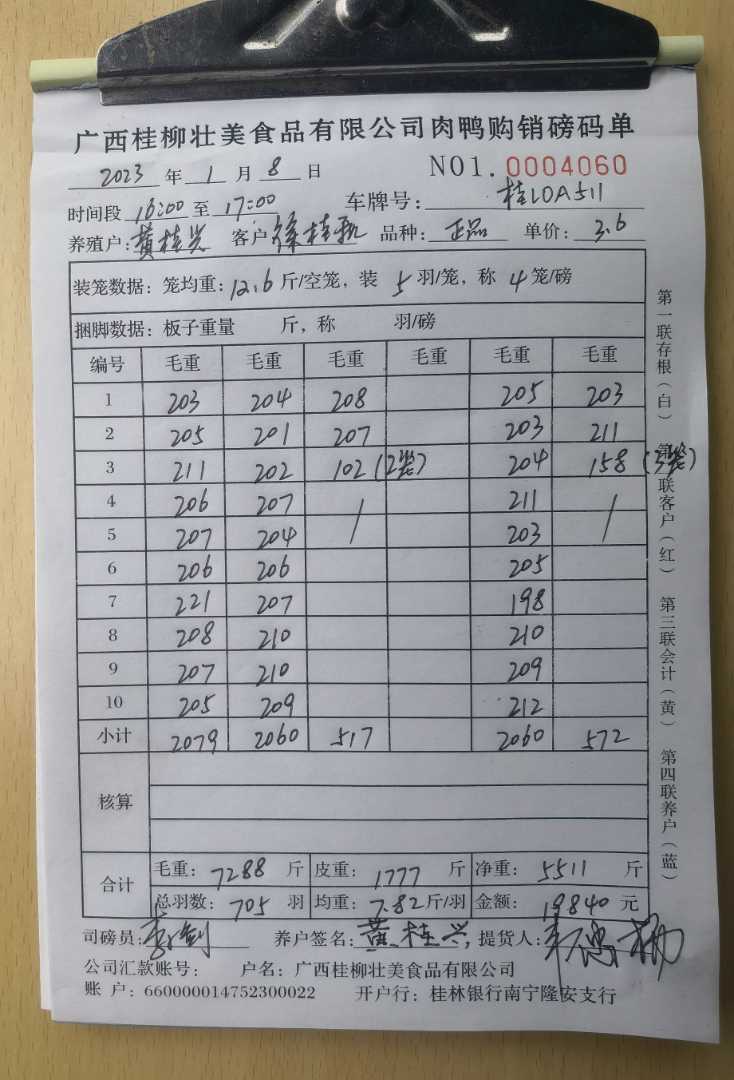 广西桂柳壮美食品有限公司肉鸭购销磅码单
2023 年 1 月 8 日 NO1.0004060
时间段 16:00 至 17:00 车牌号: 桂L0A511
养殖户: 黄桂兴 客户 桂 品种: 正品 单价: 3.6
装笼数据: 笼均重: 12.6 斤/空笼, 装 5 羽/笼, 称 4 笼/磅
捆脚数据: 板子重量 斤, 称 羽/磅
编号 毛重 毛重 毛重 毛重 毛重 毛重
1 203 204 208 205 203
2 205 201 207 203 211
3 211 202 102 (2笼) 204 158 (3笼)
4 206 207 / 211 /
5 207 204 203
6 206 206 205
7 221 207 198
8 208 210 210
9 207 210 209
10 205 209 212
小计 2079 2060 517 2060 572
核算
合计 毛重: 7288 斤 皮重: 1777 斤 净重: 5511 斤
总羽数: 705 羽 均重: 7.82 斤/羽 金额: 19840 元
司磅员: 养户签名: 黄桂兴, 提货人:
公司汇款账号: 户名: 广西桂柳壮美食品有限公司
账 户: 660000014752300022 开户行: 桂林银行南宁隆安支行
第一联存根(白) 第二联客户(红) 第三联会计(黄) 第四联养户(蓝)